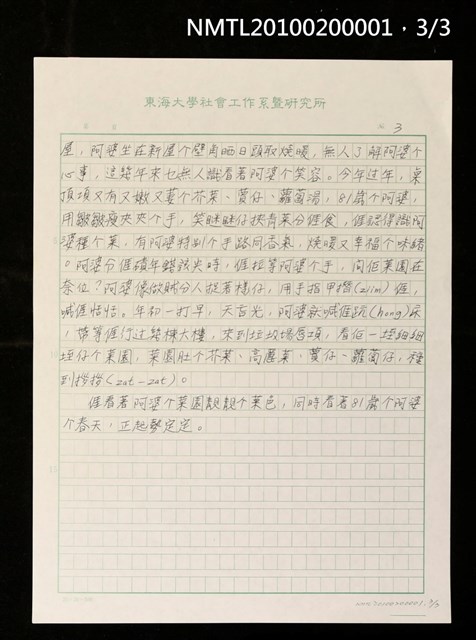 NMTL20100200001，3/3
東海大學社會工作系暨研究所
3
屋，阿婆坐在新屋个壁角晒日頭取燒暖，無人了解阿婆个
心事，這幾年來乜無人識看著阿婆个笑容。今年过年，桌
頂項又有又嫩又薑个芥菜、蕒仔、蘿蔔湯，81歲个阿婆，
用皺皺瘦夾夾个手，笑瞇瞇仔挾青菜分𠊎食，𠊎認得識阿
婆種个菜，有阿婆特別个手路同香氣，燒暖又幸福个味緒
。阿婆分𠊎磧年錢該央時，𠊎拉等阿婆个手，問佢菜園在
奈位？阿婆像做賊分人捉著樣仔，用手指甲搢(ziim)𠊎，
喊𠊎恬恬。年初一打早，天言光，阿婆就喊𠊎䟘(hong)床
，帶等𠊎行过幾棟大樓，來到垃圾場脣項，看佢一坵細細
坵仔个菜園，菜園肚个芥菜、高麗菜、蕒仔、蘿蔔仔，種
到拶拶(zat-zat)。
𠊎看著阿婆个菜園靚靚个菜色，同時看著81歲个阿婆
个春天，正起勢定定。
NMTL20100200001.3/3